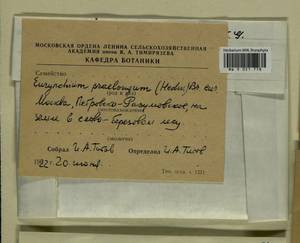 МОСКОВСКАЯ ОРДЕНА ЛЕНИНА СЕЛЬСКОХОЗЯЙСТВЕННАЯ
АКАДЕМИЯ имени К. А. ТИМИРЯЗЕВА
КАФЕДРА БОТАНИКИ
Семейство
Eurynchium praelongum (Hedw.) Br. eur.
(род и вид)
Москва, Петровско-Разумовское, на
(местонахождение)
земле в елово-березовом лесу
(экология)
Собрал И.А. Титов Определил И.А. Титов
1922 г. 20 июня